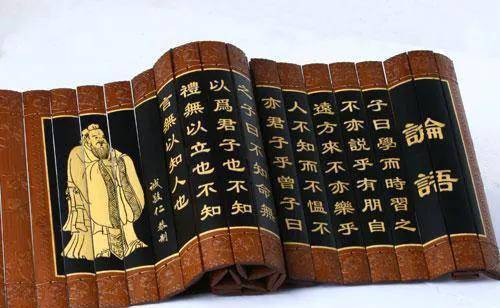 論語
子曰學而時習之
不亦説乎有朋自
遠方來不亦樂乎
人不知而不慍不
亦君子乎曾子曰
之子曰不知命無
以爲君子也不知
禮無以立也不知
言無以知人也
誠敬仁